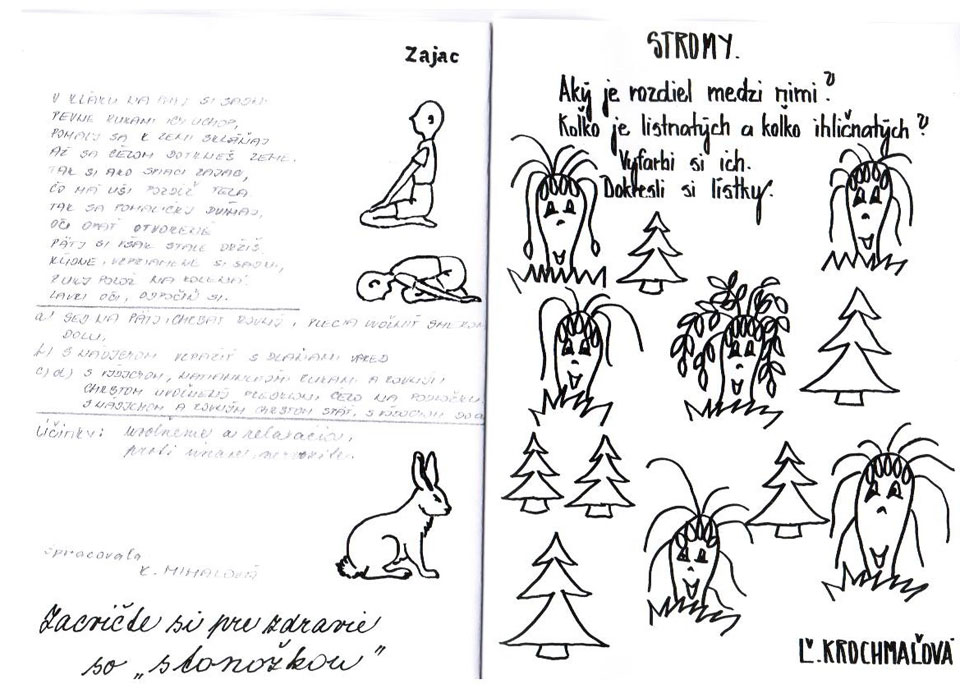 Zajac
V KĽAKU NA PÄTY SI SADNI
PEVNE RUKAMI ICH UCHOP,
POMALY SA K ZEMI SKLÁŇAJ
AŽ SA ČELOM DOTKNEŠ ZEME.
TAK SI AKO SPIACI ZAJAC,
ČO MÁ UŠI POZDĹŽ TELA.
TAK SA POMALIČKY DVÍHAJ,
OČI OPÄŤ OTVORENÉ
PÄTY SI VŠAK STÁLE DRŽÍŠ
KĽUDNE, VZPRIAMENE SI SADNI,
RUKY POLOŽ NA KOLENÁ.
ZAVRI OČI, ODPOČIŇ SI.
a) SED NA PÄTY, CHRBÁT ROVNÝ, PLECIA UVOĽNIŤ SMEROM
DOLU,
b) S DLAŇAMI VPRED
c) d) S VÝDYCHOM, RUKAMI A ROVNÝM
CHRBTOM ČELO NA PODLOŽKU
S NÁDYCHOM A ROVNÝM CHRBTOM SPÄŤ, S VÝDYCHOM
Účinky: uvoľnenie a relaxácia,
proti únave, nervozite.
spracovala
K. MIHALOVÁ
Zacvičte si pre zdravie
so „stonožkou"
STROMY.
Aký je rozdiel medzi nimi?
Koľko je listnatých a koľko ihličnatých?
Vyfarbi si ich.
Dokresli si lístky.
Ľ. KROCHMAĽOVÁ